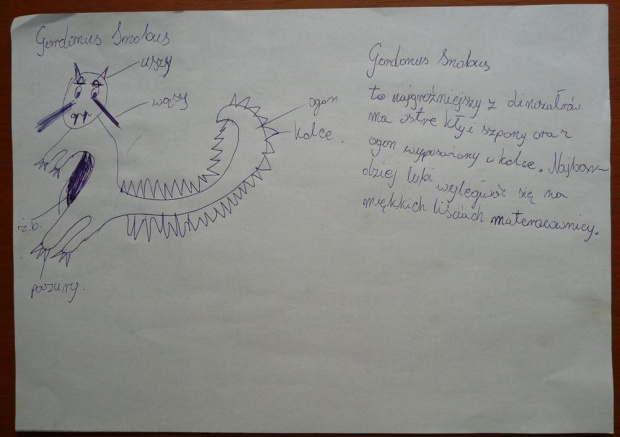 Gordonus Snobus
uszy
wąsy
ogon
kolce.
ż.b.
pazury.
Gordonus Snobus
to najgroźniejszy z dinozałrów
ma ostre kły i szpony oraz
ogon wyposarzony w kolce. Najbar-
dziej lubi wylegiwać się na
miękkich liściach materacownicy.